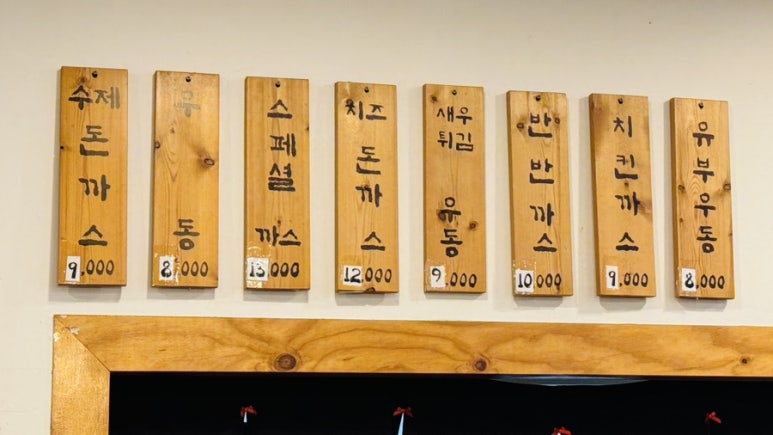 수제
돈
까
스
9,000
우
동
8,000
스
페
셜
까스
13,000
치즈
돈
까
스
12,000
새우
튀김
우
동
9,000
반
반
까
스
10,000
치
킨
까
스
9,000
유
부
우
동
8,000